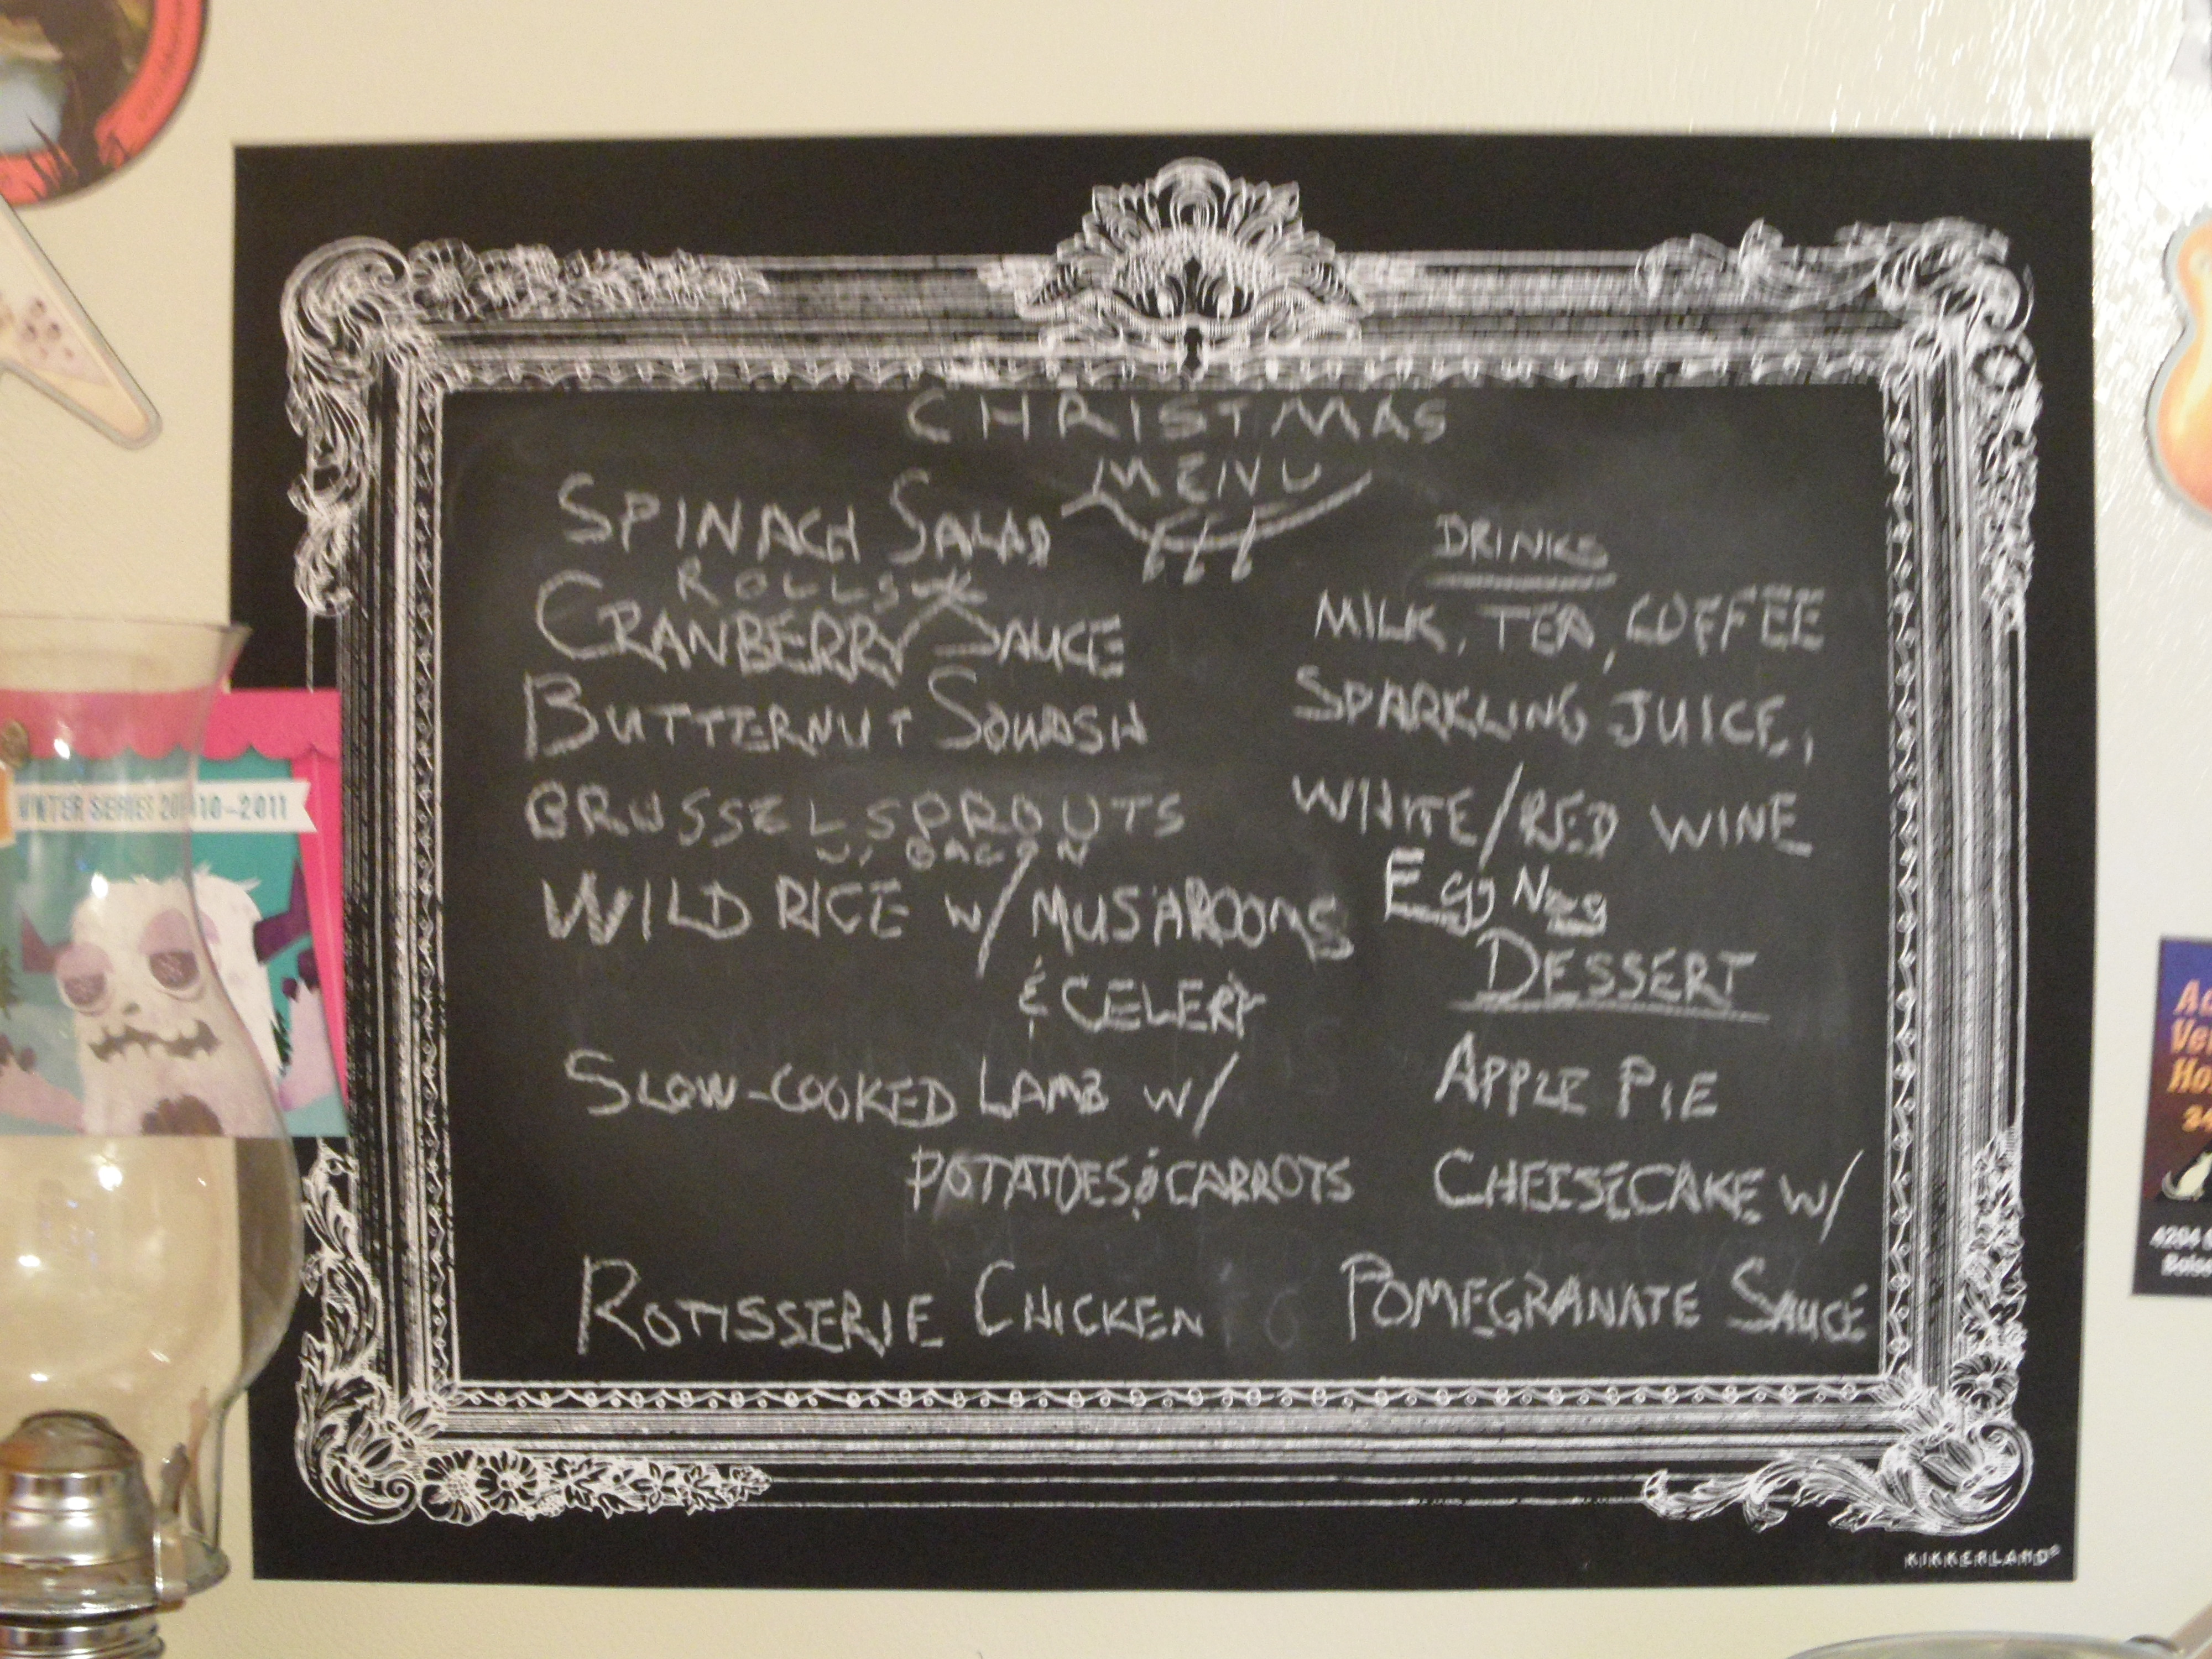 CHRISTMAS
MENU
SPINACH SALAD
ROLLS
CRANBERRY SAUCE
BUTTERNUT SQUASH
BRUSSEL SPROUTS
W/ BACON
WILD RICE W/ MUSHROOMS
& CELERY
SLOW-COOKED LAMB W/
POTATOES & CARROTS
ROTISSERIE CHICKEN
DRINKS
MILK, TEA, COFFEE
SPARKLING JUICE,
WHITE/RED WINE
Egg Nog
DESSERT
APPLE PIE
CHEESECAKE W/
POMEGRANATE SAUCE
KIKKERLAND®
WINTER SERIES 2010-2011
4204